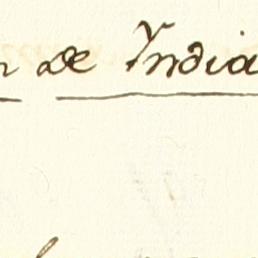 de India